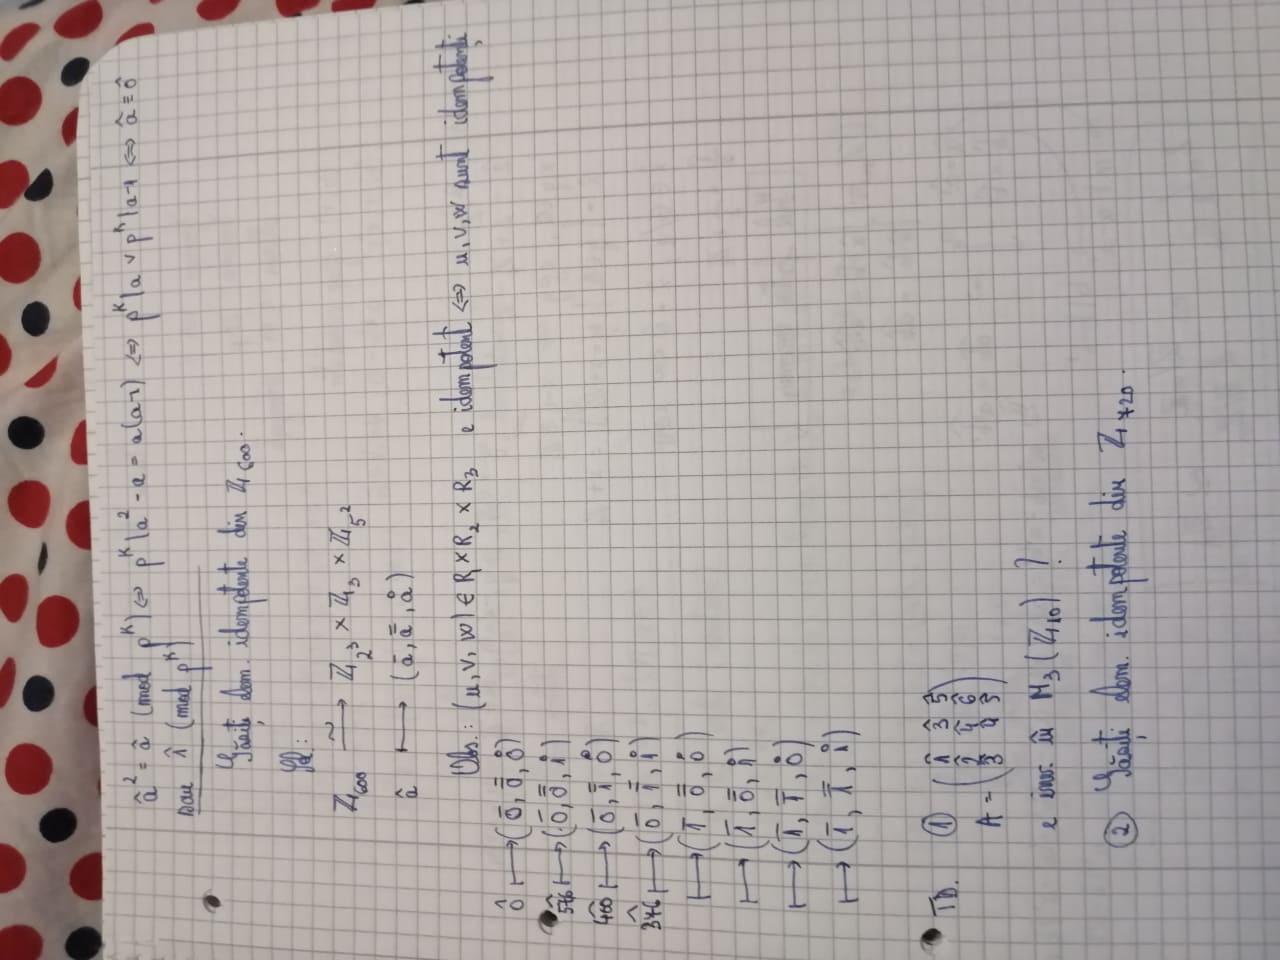 â² = â (mod p^k) ⇔ p^k | a² - a = a(a-1) ⇔ p^k | a ∨ p^k | a-1 ⇔ â = 0̂
sau 1̂ (mod p^k)
Găsiți elem. idempotente din ℤ₆₀₀.
Sol:
ℤ₆₀₀ ⥲ ℤ_{2³} × ℤ₃ × ℤ_{5²}
â ⟼ (ā, a̿, å)
Obs.: (u, v, w) ∈ R₁ × R₂ × R₃ e idempotent ⇔ u, v, w sunt idempotenți
0̂ ⟼ (0̄, 0̿, 0̊)
576̂ ⟼ (0̄, 0̿, 1̊)
400̂ ⟼ (0̄, 1̿, 0̊)
376̂ ⟼ (0̄, 1̿, 1̊)
⟼ (1̄, 0̿, 0̊)
⟼ (1̄, 0̿, 1̊)
⟼ (1̄, 1̿, 0̊)
⟼ (1̄, 1̿, 1̊)
TD. ① (1̂ 3̂ 5̂
A = 2̂ 4̂ 6̂
3 4 5)
e inv. în M₃(ℤ₁₀) ?
② Găsiți elem. idempotente din ℤ₇₂₀.